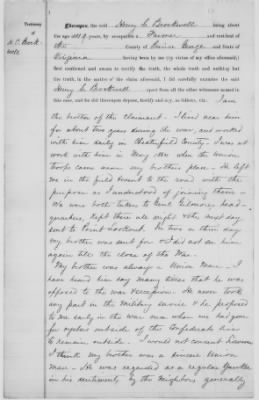 Testimony
of
H. C. Brock
well
Whereupon, the said Henry C. Brockwell being about
the age of years, by occupation a Farmer and resident of
the County of Prince George and State of
Virginia having been by me (by virtue of my office aforesaid,)
first cautioned and sworn to testify the truth, the whole truth and nothing but
the truth, in the matter of the claim aforesaid, I did carefully examine the said
Henry C. Brockwell apart from all the other witnesses named in
this case, and he did thereupon depose, testify and say, as follows, viz: I am
the brother of the claimant. I lived near him
for about two years during the war, and worked
with him daily in Chesterfield County. I was at
work with him in May when the Union
troops came near my brothers place. He left
me in the field & went to the road with the
purpose as I understood of joining them -
We were both taken to Genl Gilmores head-
quarters, kept there all night & the next day
sent to Point Lookout. In two or three days
my brother was sent for & I did not see him
again till the close of the War.
My brother was always a Union Man. I
have heard him say many times that he was
opposed to the war & secession. He never took
any part in the Military service & he proposed
to me early in the war once when we had gone
for oysters outside of the Confederate lines
to remain outside. I would not consent however.
I think my brother was a sincere Union
Man - He was regarded as a regular Yankee
in his sentiments by the Neighbors generally